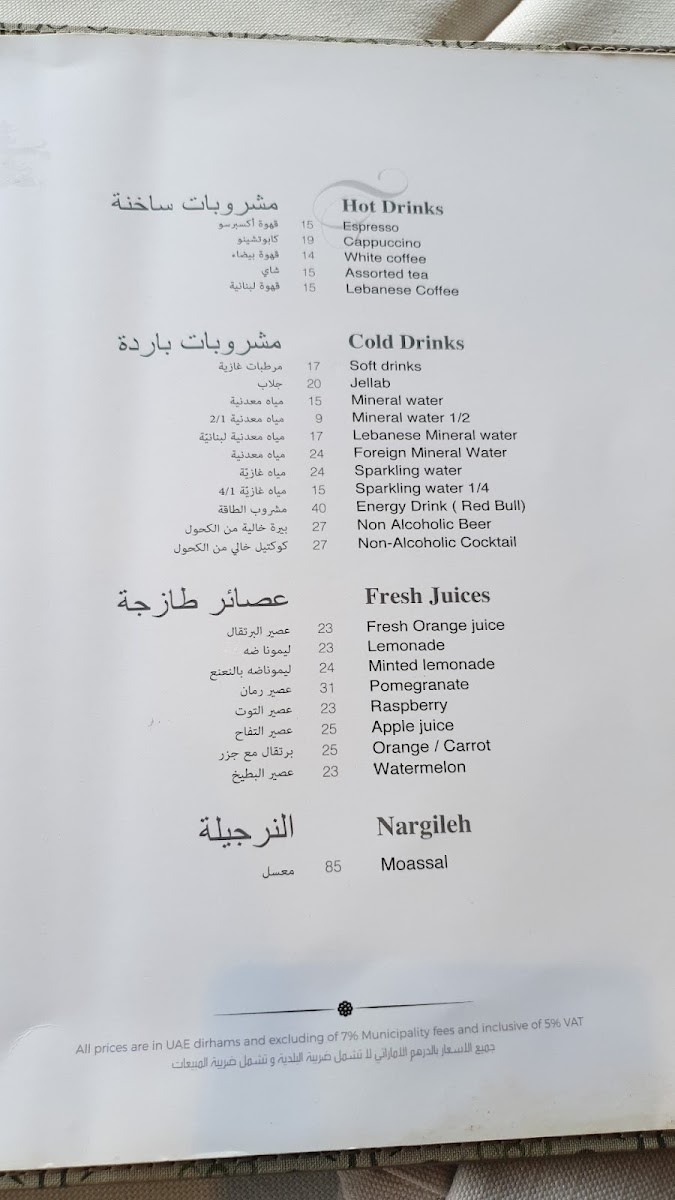 مشروبات ساخنة Hot Drinks
قهوة أكسبرسو 15 Espresso
كابوتشينو 19 Cappuccino
قهوة بيضاء 14 White coffee
شاي 15 Assorted tea
قهوة لبنانية 15 Lebanese Coffee
مشروبات باردة Cold Drinks
مرطبات غازية 17 Soft drinks
جلاب 20 Jellab
مياه معدنية 15 Mineral water
مياه معدنية 2/1 9 Mineral water 1/2
مياه معدنية لبنانيّة 17 Lebanese Mineral water
مياه معدنية 24 Foreign Mineral Water
مياه غازيّة 24 Sparkling water
مياه غازيّة 4/1 15 Sparkling water 1/4
مشروب الطاقة 40 Energy Drink ( Red Bull)
بيرة خالية من الكحول 27 Non Alcoholic Beer
كوكتيل خالي من الكحول 27 Non-Alcoholic Cocktail
عصائر طازجة Fresh Juices
عصير البرتقال 23 Fresh Orange juice
ليمونا ضه 23 Lemonade
ليموناضه بالنعنع 24 Minted lemonade
عصير رمان 31 Pomegranate
عصير التوت 23 Raspberry
عصير التفاح 25 Apple juice
برتقال مع جزر 25 Orange / Carrot
عصير البطيخ 23 Watermelon
النرجيلة Nargileh
معسل 85 Moassal
All prices are in UAE dirhams and excluding of 7% Municipality fees and inclusive of 5% VAT
جميع الأسعار بالدرهم الأماراتي لا تشمل ضريبة البلدية و تشمل ضريبة المبيعات